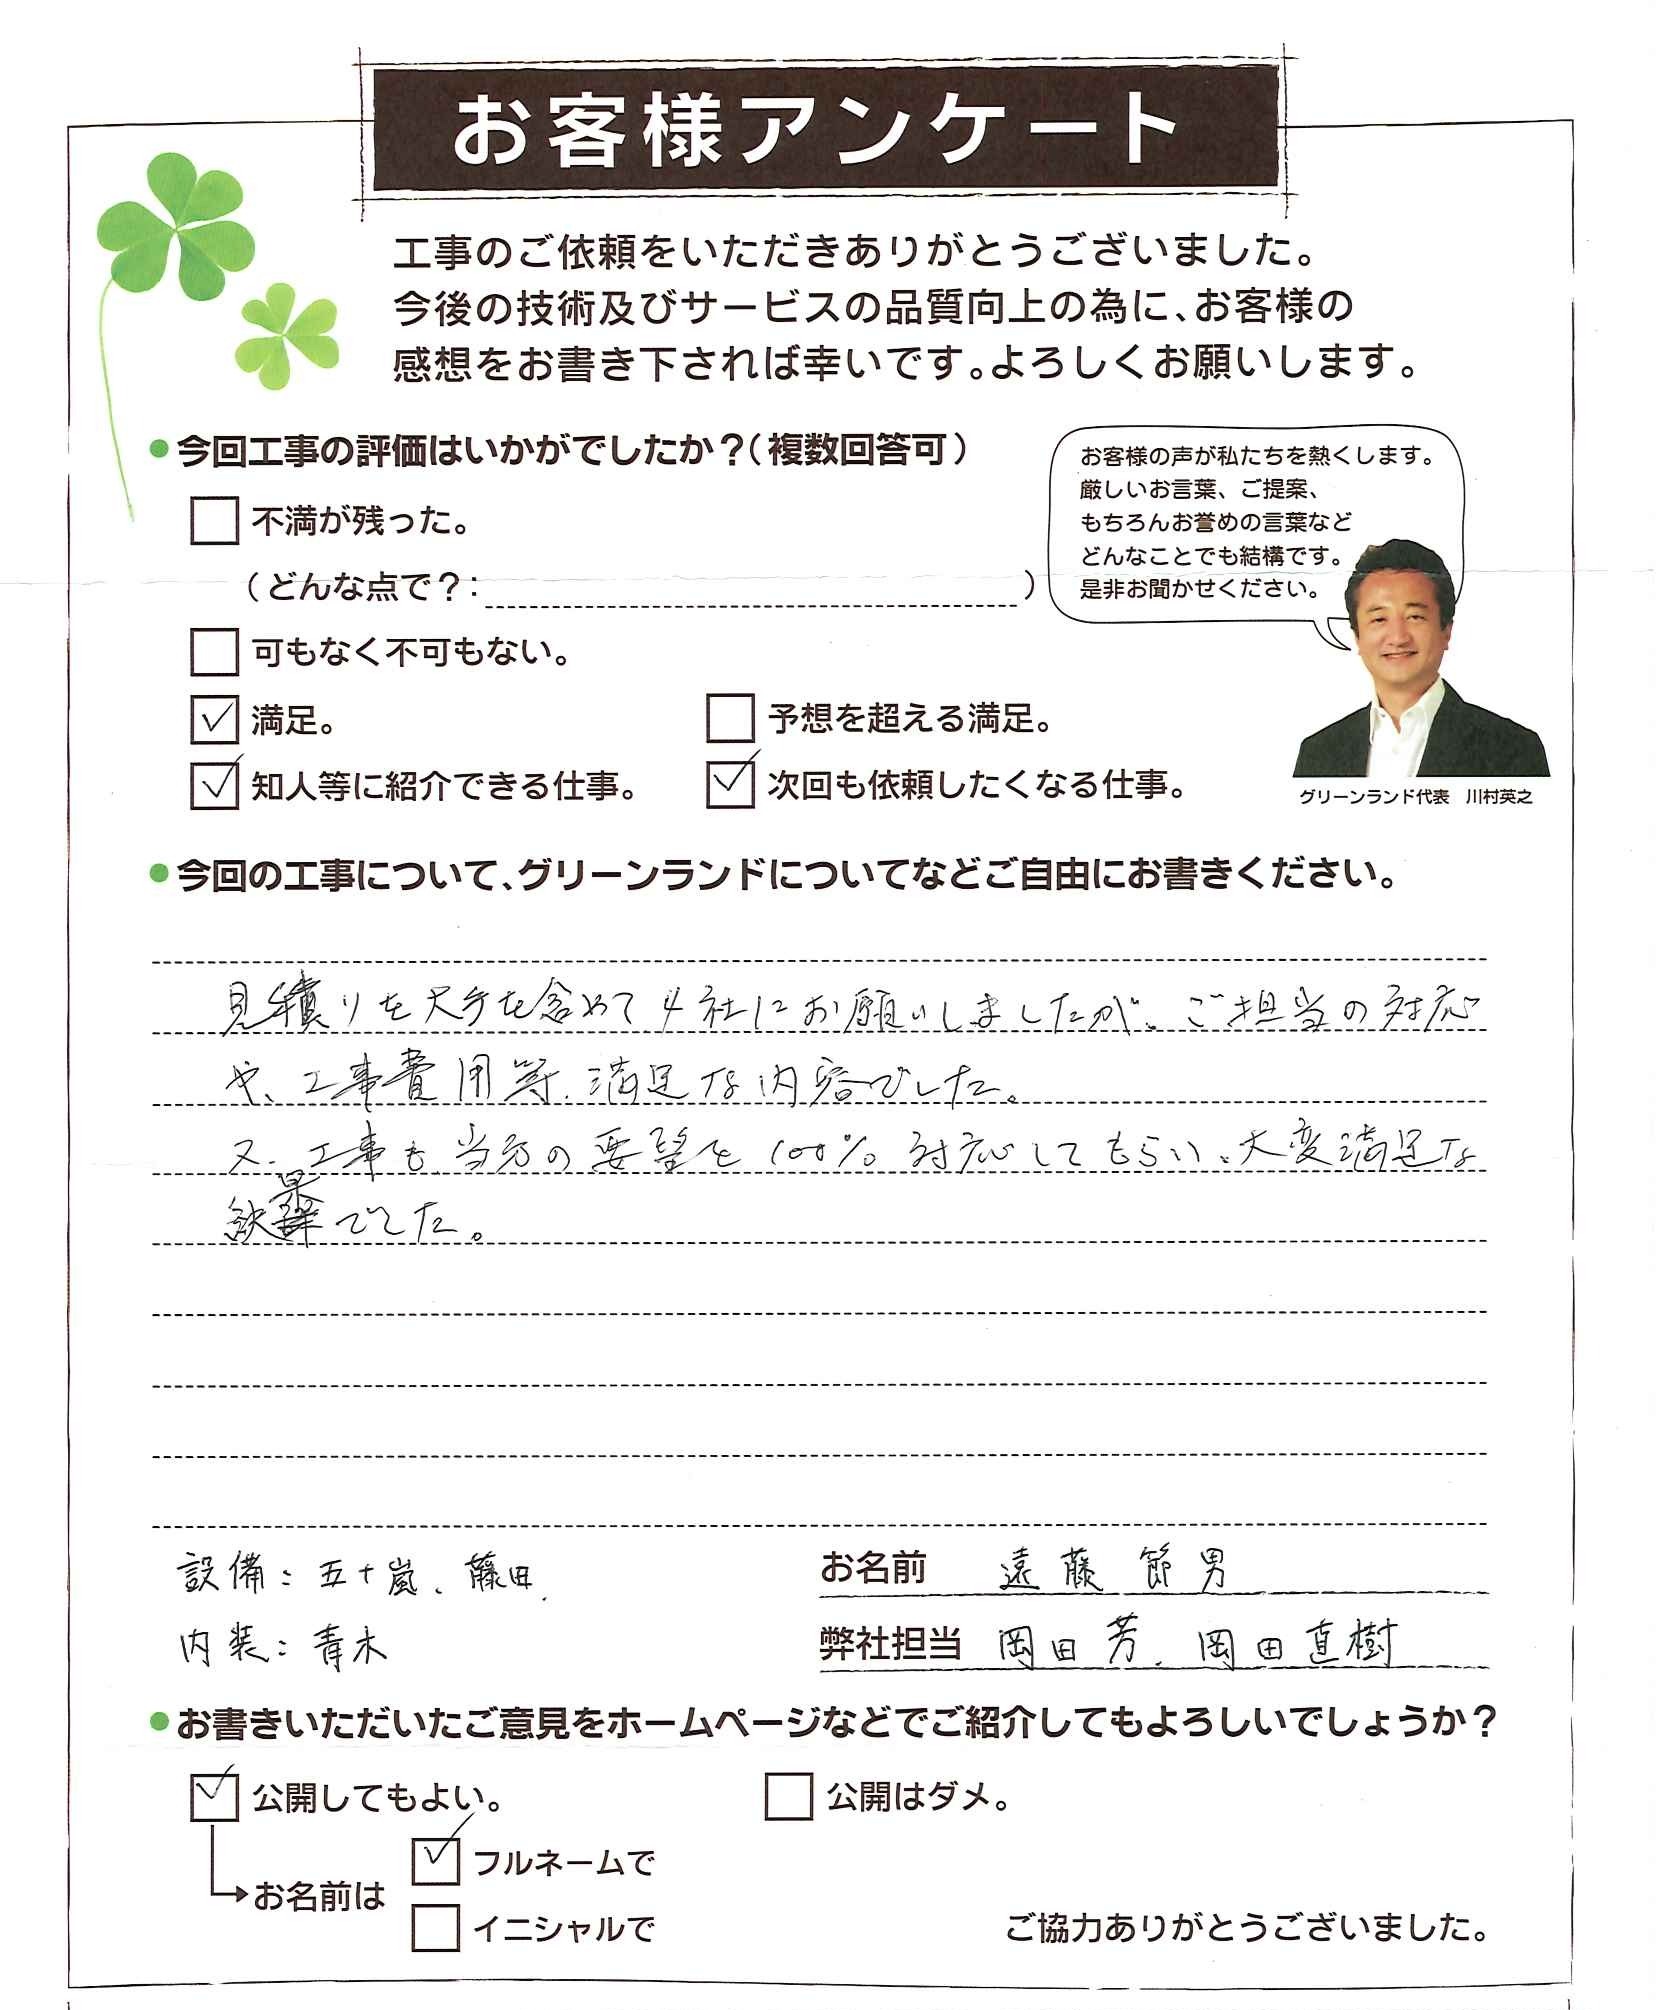 お客様アンケート
工事のご依頼をいただきありがとうございました。
今後の技術及びサービスの品質向上の為に、お客様の
感想をお書き下されば幸いです。よろしくお願いします。
●今回工事の評価はいかがでしたか？（複数回答可）
不満が残った。
（どんな点で？：　）
可もなく不可もない。
満足。
予想を超える満足。
知人等に紹介できる仕事。
次回も依頼したくなる仕事。
お客様の声が私たちを熱くします。
厳しいお言葉、ご提案、
もちろんお誉めの言葉など
どんなことでも結構です。
是非お聞かせください。
グリーンランド代表　川村英之
●今回の工事について、グリーンランドについてなどご自由にお書きください。
見積りを大手を含めて4社にお願いしましたが、ご担当の対応
や、工事費用等、満足な内容でした。
又、工事も当方の要望を100%対応してもらい、大変満足な
結果でした。
設備：五十嵐、藤田
内装：青木
お名前　遠藤節男
弊社担当　岡田芳、岡田直樹
●お書きいただいたご意見をホームページなどでご紹介してもよろしいでしょうか？
公開してもよい。
公開はダメ。
お名前は
フルネームで
イニシャルで
ご協力ありがとうございました。